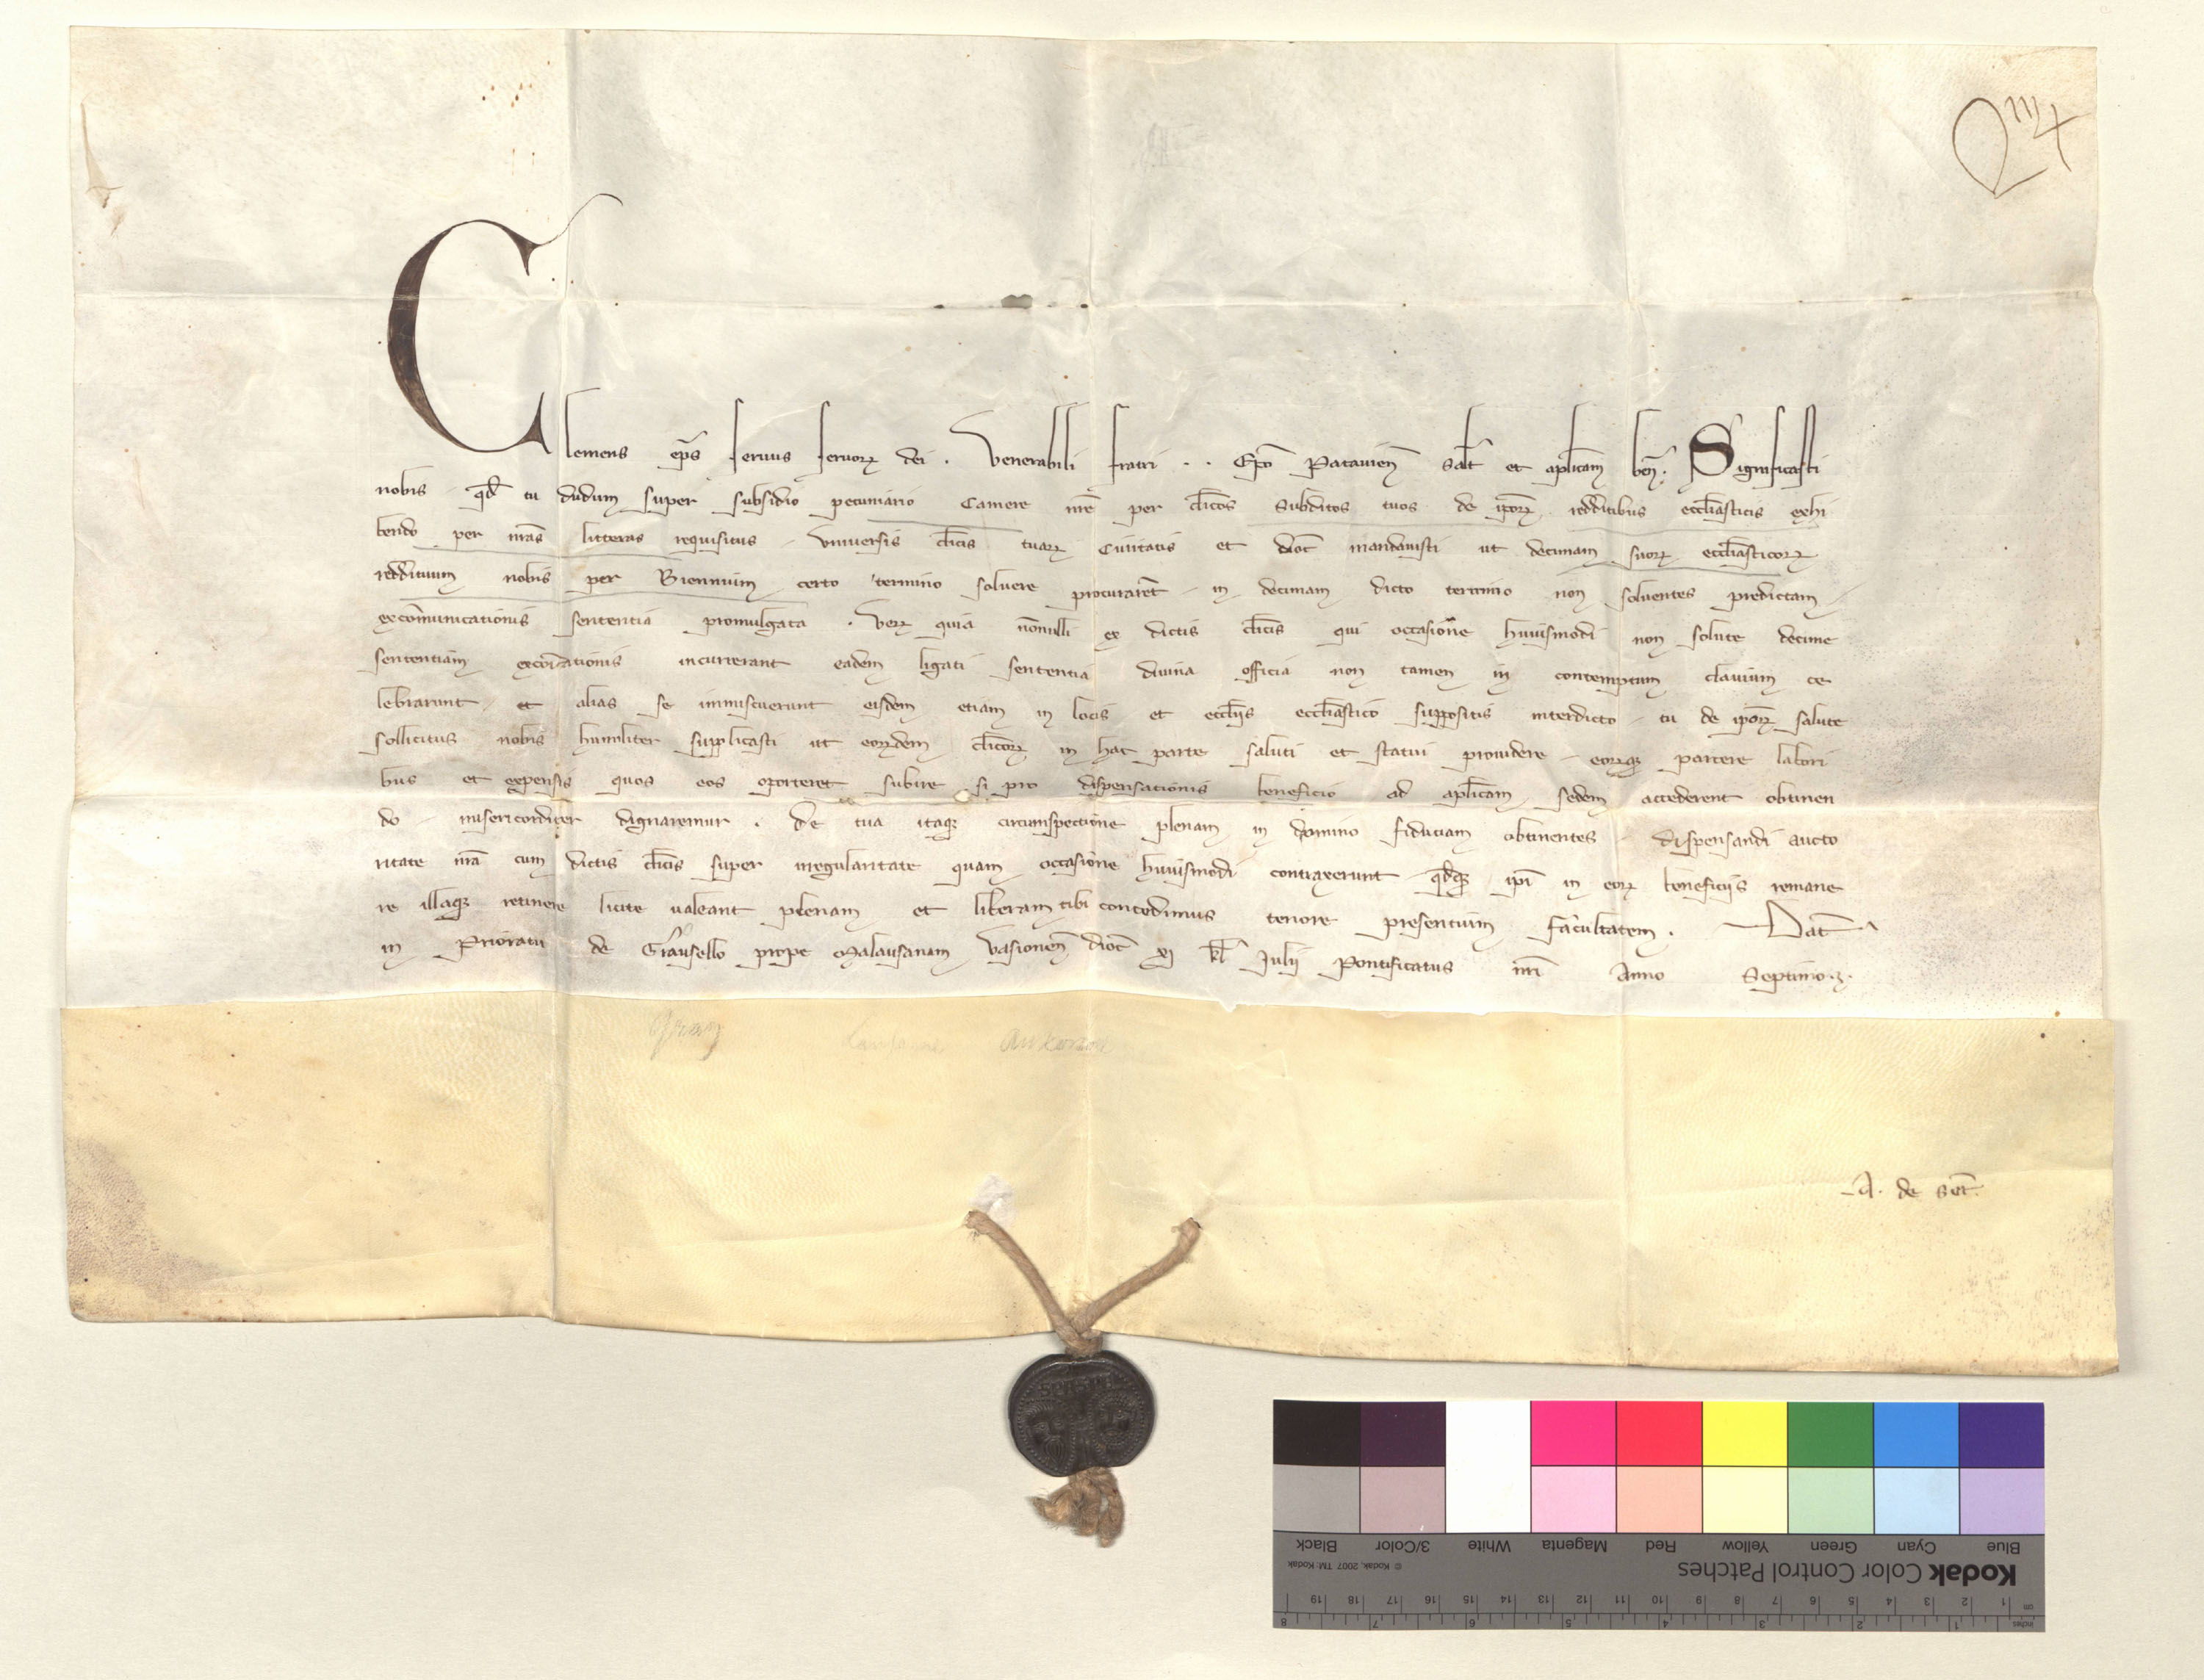 Clemens ep̄s seruus seruorꝝ dei . Venerabili fratri . . Ep̄o Patauien̄ salt̄ et ap̄licam ben̄. Significasti
nobis qd̄ tu dudum super subsidio pecuniario Camere nr̄e per cl̄icos subditos tuos de ip̄orꝝ redditibus eccl̄iasticis exhi
bendo per nr̄as litteras requisitus vniuersis cl̄icis tuarꝝ Ciuitatis et dioc̄ mandauisti ut decimam suorꝝ eccl̄iasticorꝝ
reddituum nobis per Biennium certo termino soluere procurarēt in decimam dicto termino non soluentes predictam
excōmunicationis sententia promulgata . Verꝝ quia nōnulli ex dictis cl̄icis qui occasione huiusmodi non solute decime
sententiam excōīcationis incurrerant eadem ligati sententia diuina officia non tamen in contemptum clauium ce
lebrarunt et alias se inmiscuerunt eisdem etiam in locis et eccl̄iis eccl̄iastico suppositis interdicto tu de ip̄orꝝ salute
sollicitus nobis humiliter supplicasti ut eorꝝdem cl̄icorꝝ in hac parte saluti et statui prouidere eorꝝqꝫ parcere labori
bus et expensis quos eos oporteret subire si pro dispensationis beneficio ad ap̄licam sedem accederent obtinen
do misericorditer dignaremur . De tua itaqꝫ circumspectione plenam in domino fiduciam obtinentes dispensandi aucto
ritate nr̄a cum dictis cl̄icis super irregularitate quam occasione huiusmodi contraxerunt qd̄qꝫ ip̄i in eorꝝ beneficiis remane
re illaqꝫ retinere licite ualeant plenam et liberam tibi concedimus tenore presentium facultatem . Dat̄
in Prioratu de Grausello prope Malausanam Vasionen̄ dioc̄ xj kl̄ Julij Pontificatus nr̄i Anno Septimo.
A. de set̄.
SPASPE
Kodak Color Control Patches
© Kodak, 2007 TM: Kodak
Blue Cyan Green Yellow Red Magenta White 3/Color Black
cm 1 2 3 4 5 6 7 8 9 10 11 12 13 14 15 16 17 18 19
inches 1 2 3 4 5 6 7 8